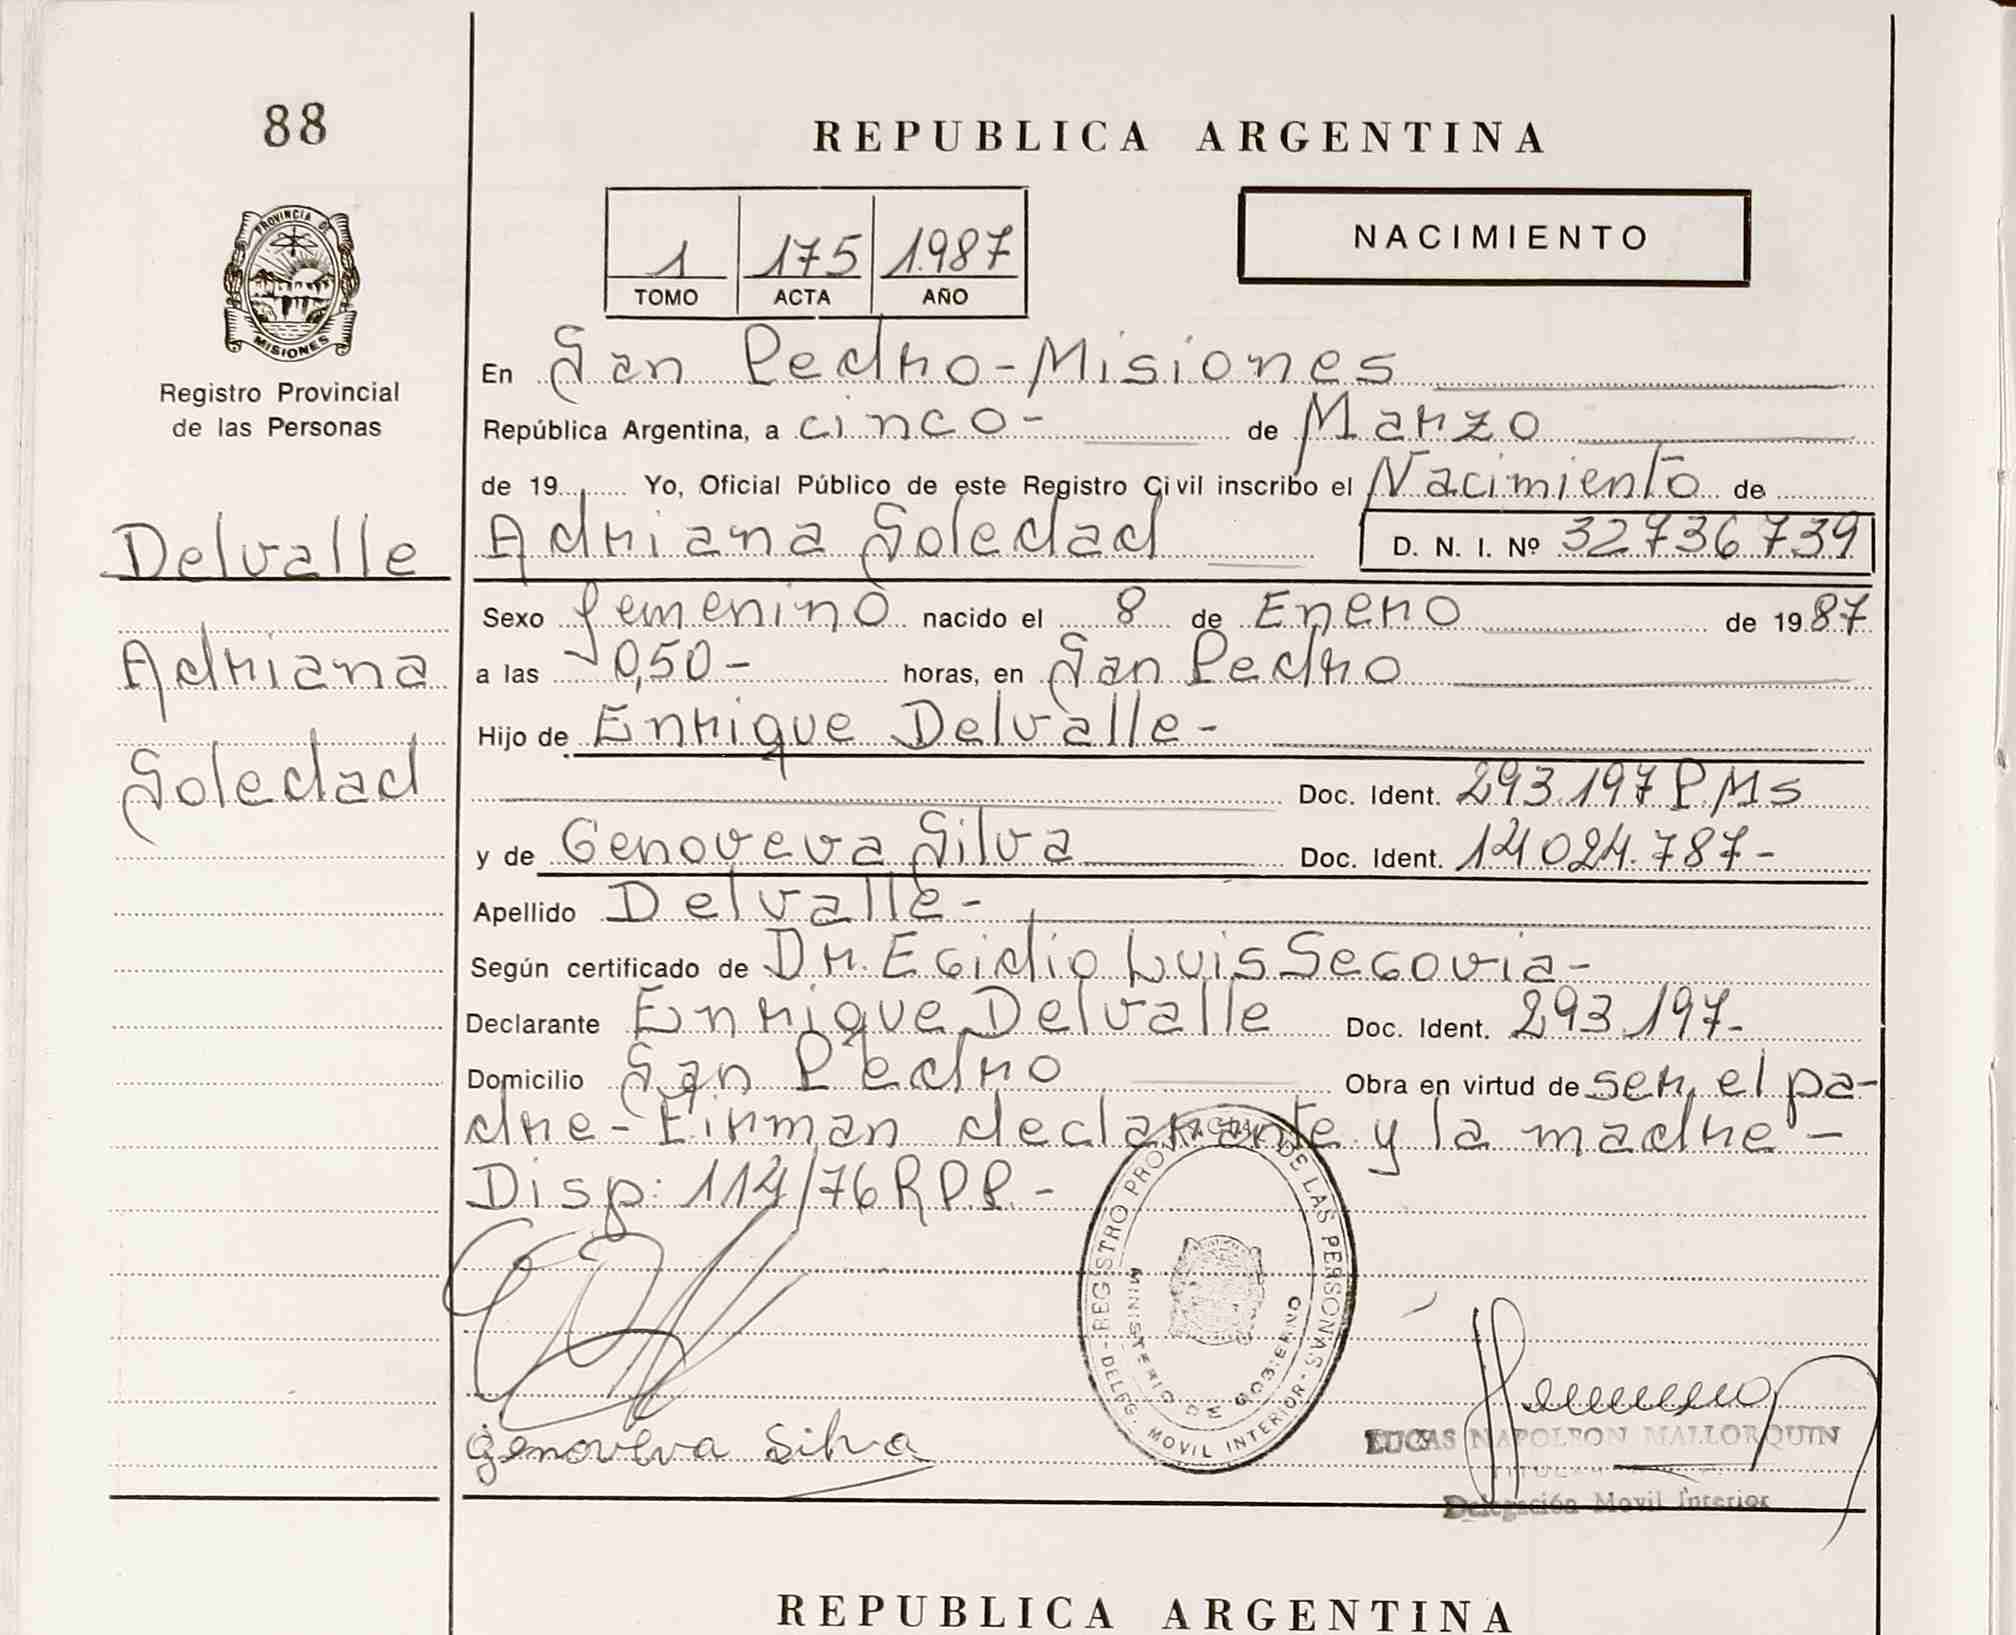 88
REPUBLICA ARGENTINA
1 175 1987
TOMO ACTA AÑO
NACIMIENTO
PROVINCIA DE
MISIONES
Registro Provincial
de las Personas
En San Pedro-Misiones
República Argentina, a cinco- de Marzo
de 19 Yo, Oficial Público de este Registro Civil inscribo el Nacimiento de
Delvalle
Adriana
Soledad
Adriana Soledad D. N. I. Nº 32736739
Sexo femenino nacido el 8 de Enero de 1987
a las 0,50- horas, en San Pedro
Hijo de Enrique Delvalle-
Doc. Ident. 293.197 P.Ms
y de Genoveva Silva Doc. Ident. 14024.787-
Apellido Delvalle-
Según certificado de Dr. Egidio Luis Segovia-
Declarante Enrique Delvalle Doc. Ident. 293.197-
Domicilio San Pedro Obra en virtud de ser el pa-
dre-Firman declarante y la madre-
Disp: 114/76 R.P.P.-
REGISTRO PROVINCIAL DE LAS PERSONAS
-DELEG. MOVIL INTERIOR-
MINISTERIO DE GOBIERNO
genoveva silva
LUCAS NAPOLEON MALLORQUIN
TITULAR
Delegación Movil Interior
REPUBLICA ARGENTINA